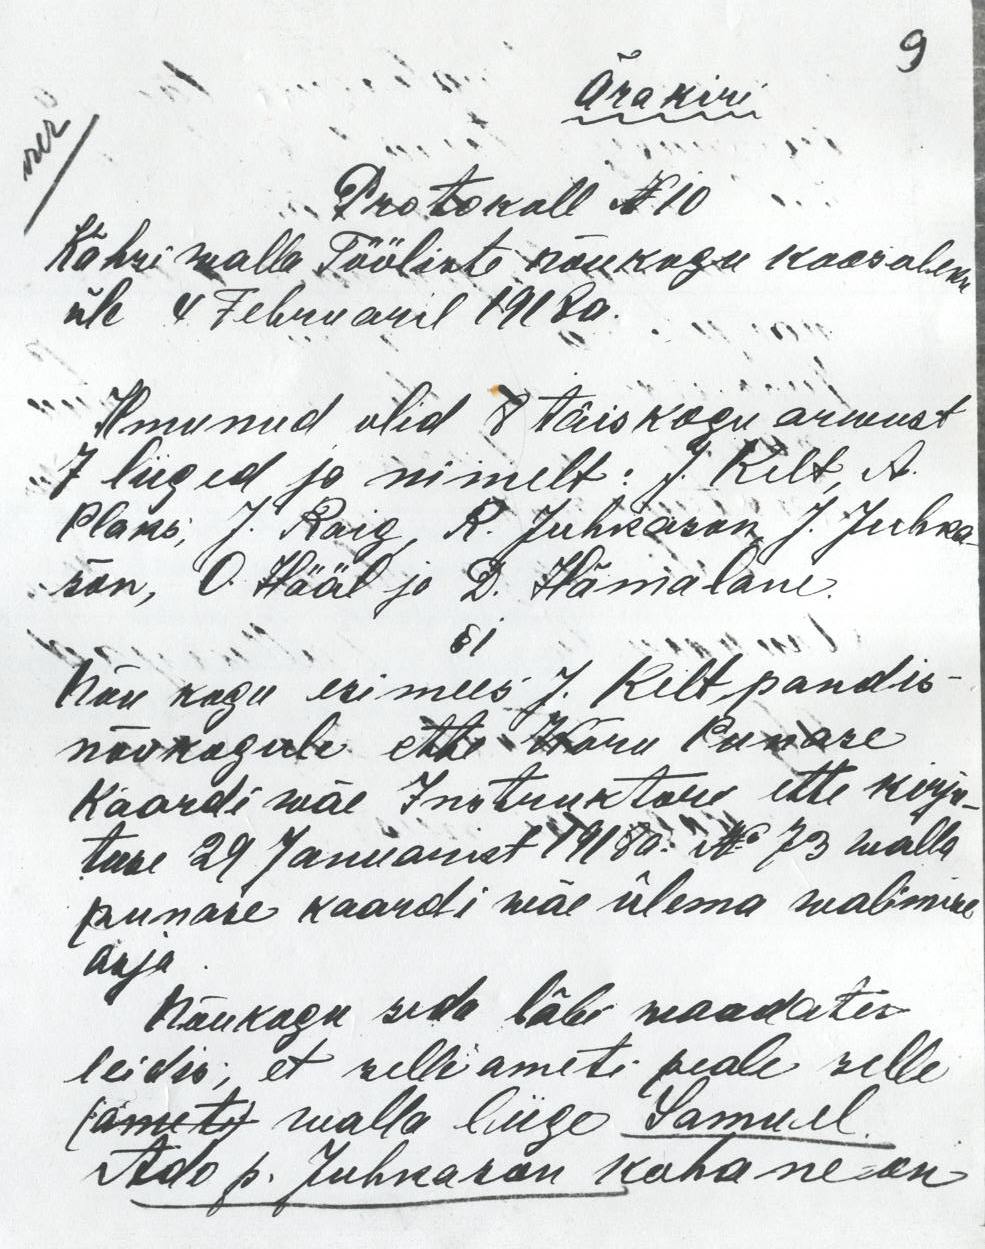 9
Ärakiri
Protokoll № 10
Kähri walla Tööliste nõukogu koosoleku
üle 4 Februaril 1918 a.
Ilmunud olid 8 täiskogu arwust
7 liiged ja nimelt: J. Kelt, A.
Plaks, J. Raig, R. Juhkason, J. Juhka-
son, O. Hääl ja D. Hämalane.
§1
Nõu kogu esimees J. Kelt, pandis
nõukogule ette Wõru Punase
Kaardi wäe Instruktori ette kirju-
tuse 29 Januarist 1918 a. № 73 walla
punase kaardi wäe ülema walimise
asja.
Nõukogu seda läbi waadates
leidis, et selle ameti peale selle
(ameti) walla liige Samuel
Ado p. Juhkason kohane on